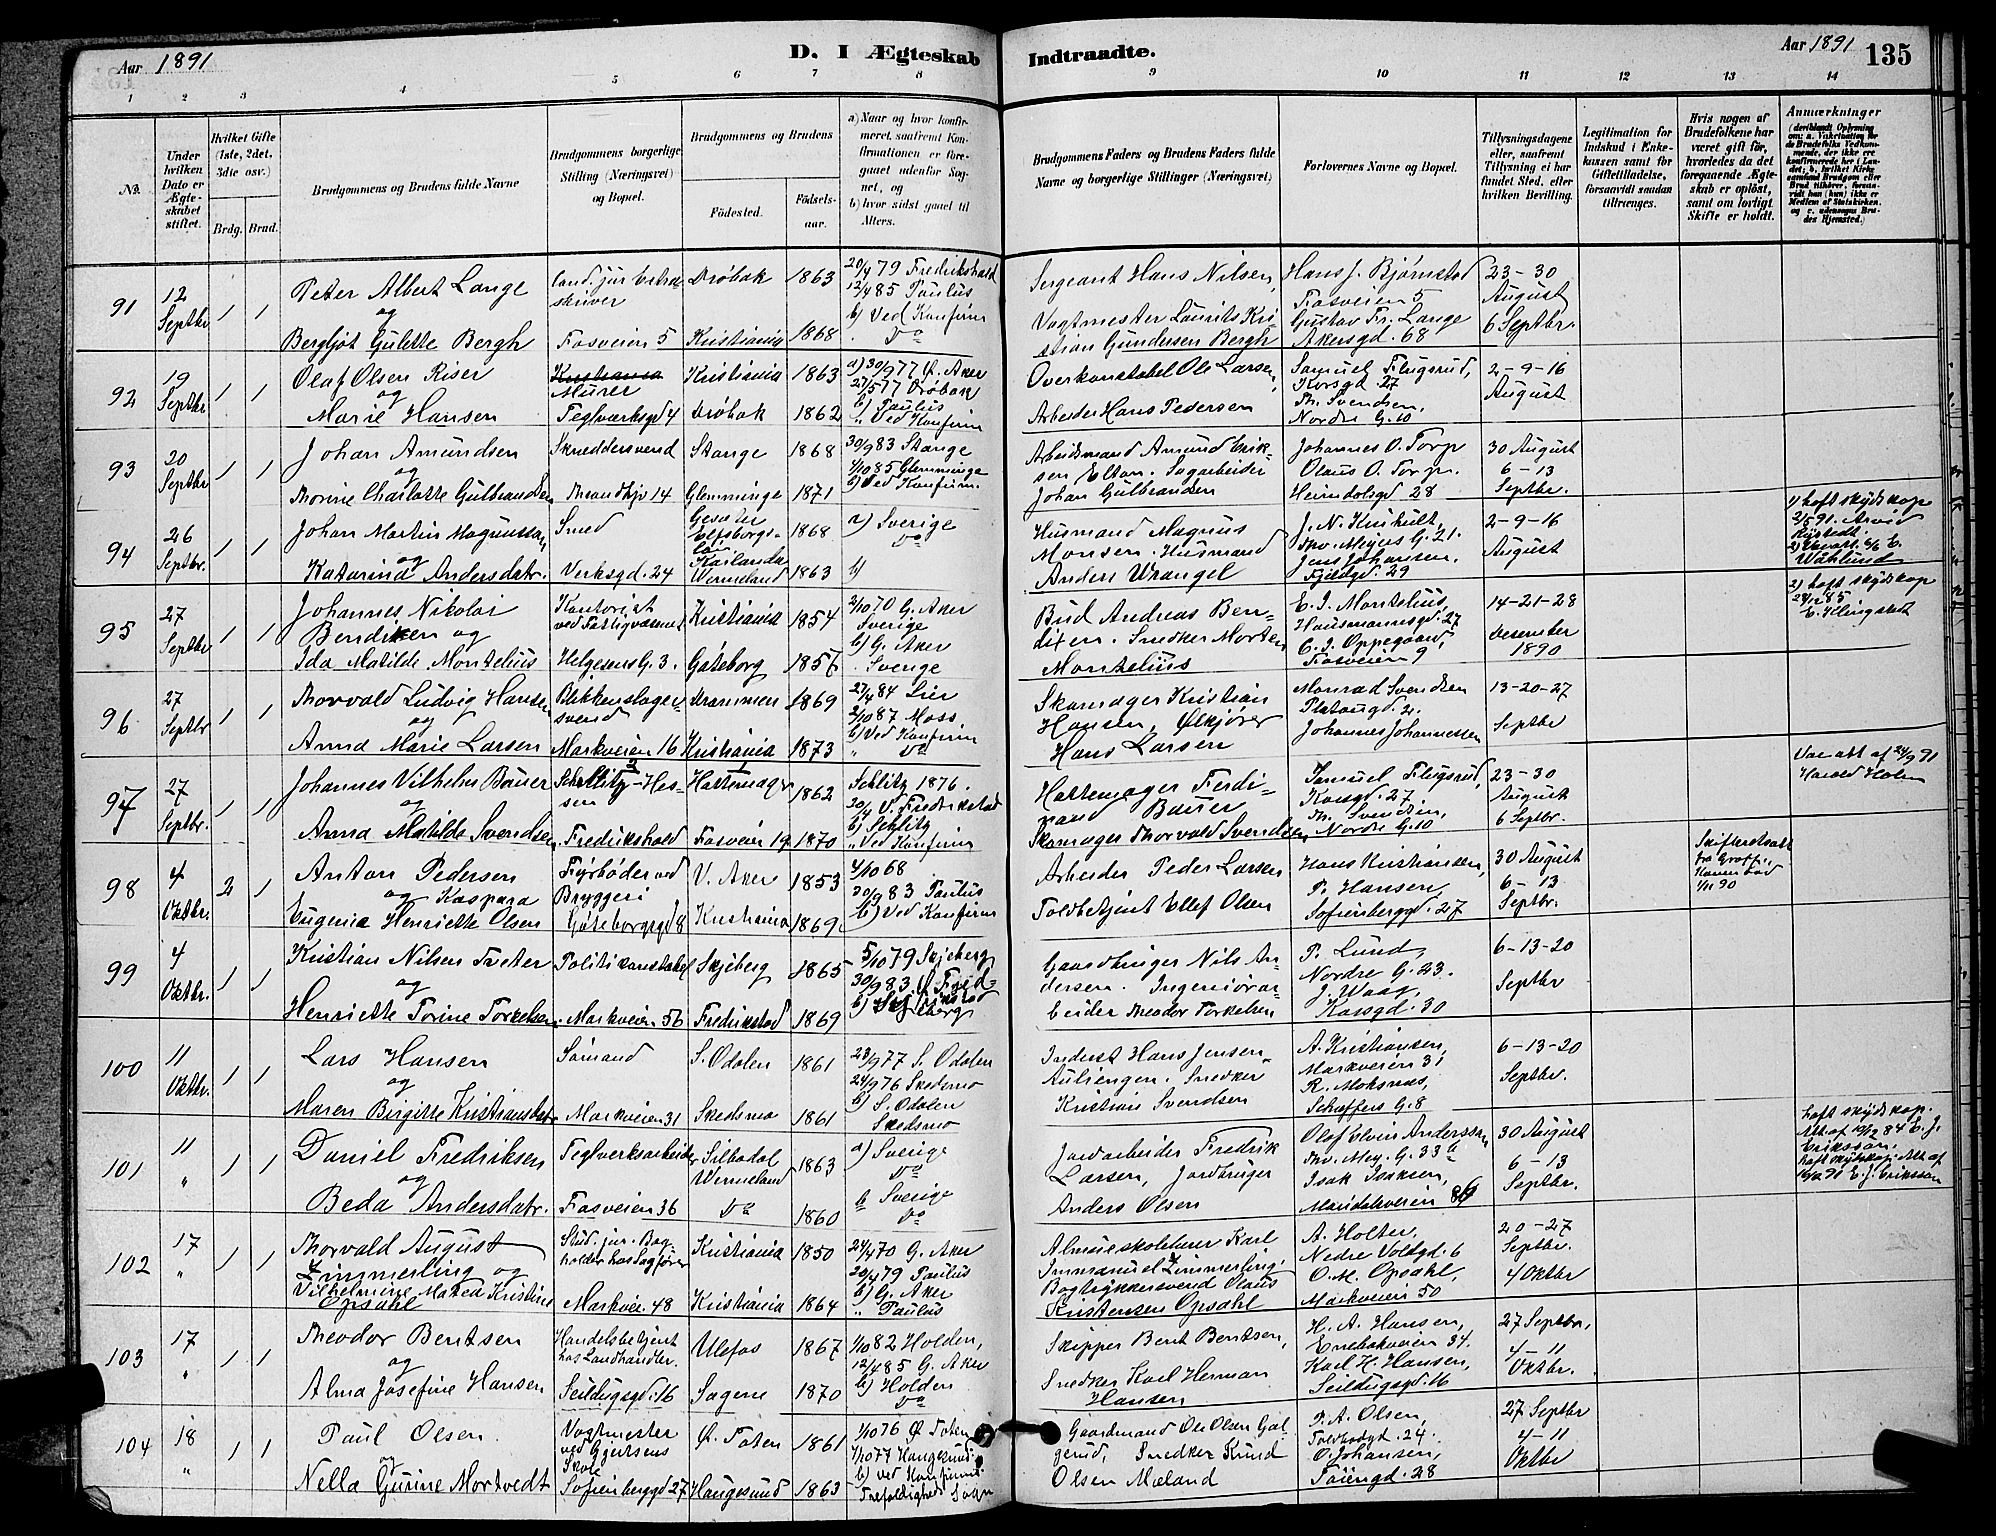 Aar 1891
D. I Ægteskab
Indtraadte.
Aar 1891
135
1 2 3 4 5 6 7 8 9 10 11 12 13 14
No.
Under hvilken Dato er Ægteskabet stiftet.
Hvilket Gifte (1ste, 2det, 3die osv.)
Brdg. Brud.
Brudgommens og Brudens fulde Navne
Brudgommens borgerlige Stilling (Næringsvei) og Bopæl.
Brudgommens og Brudens
Fødested.
Fødselsaar.
a) Naar og hvor konfirmeret, saafremt Konfirmationen er foregaaet udenfor Sognet, og
b) hvor sidst gaaet til Alters.
Brudgommens Faders og Brudens Faders fulde Navne og borgerlige Stillinger (Næringsvei)
Forlovernes Navne og Bopæl.
Tillysningsdagene eller, saafremt Tillysning ei har fundet Sted, efter hvilken Bevilling.
Legitimation for Indskud i Enkekassen samt for Giftetilladelse, forsaavidt saadan tiltrænges.
Hvis nogen af Brudefolkene har været gift før, hvorledes da det foregaaende Ægteskab er opløst, samt om lovligt Skifte er holdt.
Anmærkninger
91
12 Septbr
1 1
Peter Albert Lange
og
Bergljót Gulette Bergh
Cand. jur. Extraskriver
Fosveien 5
Drøbak 1863
Kristiania 1868
20/4 79 Fredrikshald
12/4 85 Paulus
b) Ved Konfirm
Do
Sergeant Hans Nilsen,
Vagtmester Laurits Kristian Gundersen Bergh
Hans J. Bjørnstad
Fosveien 5
Gustav Fr. Lange
Akersgd. 68
23-30
August
6 Septbr.
92
19 Septbr
1 1
Olaf Olsen Riser
og
Marie Hansen
Murer
Teglverksgd 4
Kristiania 1863
Drøbak 1862
a) 30/9 77 Ø. Aker
27/5 77 Drøbak
b) Paulus
" Ved Konfirm
Overkonstabel Ole Larsen,
Arbeider Hans Pedersen
Samuel Flugsrud,
Korsgd. 27
Th. Svendsen,
Nordre G. 10
2-9-16
August
93
20 Septbr
1 1
Johan Amundsen
og
Thorine Charlotte Gulbrandsen
Skræddersvend
Stange 1868
Glemminge 1871
30/9 83 Stange
1/10 85 Glemminge
b) Ved Konfirm.
Arbeidsmand Amund Eriksen Elton. Sagarbeider
Johan Gulbrandsen
Johannes O. Torp
Olaus O. Torp.
Heimdalsgd. 28
30 August
6-13
Septbr.
94
26 Septbr.
1 1
Johan Martin Magnussøn
og
Katarina Andersdatr.
Smed
Verksgd. 24
Elfsborgslän 1868
Wermeland 1863
a) Sverige
Do
b)
Husmand Magnus
Monsen. Husmand
Anders Wrangel
Thv. Meyers G. 21.
Jens Johansen,
Fjeldgd. 29
2-9-16
August
95
27 Septbr
1 1
Johannes Nikolai
Bendixen og
Ida Matilde Montelius
Kontorist ved Fattigvæsenet
Helgesens G. 3.
Kristiania 1854
Göteborg 1857
2/10 70 G. Aker
Sverige
b) G. Aker
Sverige
Bud Andreas Bendixen. Snedker Morten
Montelius
E. I. Montelius
Hausmannsgd. 27
C. I. Oppegaard,
Fosveien 9
14-21-28
Desember
1890
96
27 Septbr
1 1
Thorvald Ludvig Hansen
og
Anna Marie Larsen
Blikkenslagersvend
Markveien 16
Drammen 1869
Kristiania 1873
27/4 84 Lier
2/10 87 Moss.
b) Ved Konfirm
" Do
Skomager Kristian
Hansen, Ølkjører
Hans Larsen
Monrad Svendsen
Platougd. 2.
Johannes Johannessen
13-20-27
Septbr
97
27 Septbr.
1 1
Johannes Vilhelm Bauer
og
Anna Matilde Svendsen
Schlitz-Hessen
Fredrikshald
Hattemager 1862
Fosveien 19 1870
Schlitz 1876.
V. Fredrikstad
b) Schlitz
" Ved Konfirm
Hattemager Ferdinand Bauer
Skomager Thorvald Svendsen
Samuel Flugsrud,
Korsgd. 27
Th. Svendsen,
Nordre G. 10
23-30
August
6 Septbr.
Vac. att. af 24/9 91
Harald Holm
98
4 Oktbr.
2 1
Anton Pedersen
og Kaspara
Eugenia Henriette Olsen
Fyrbøder ved Bryggeri
Göteborggd 8
V. Aker 1853
Kristiania 1869.
4/10 68
30/9 83 Paulus
b) Ved Konfirm
Arbeider Peder Larsen
Toldbetjent Ellef Olsen
Hans Kristiansen,
P. Hansen,
Sofienberggd. 27
30 August
6-13
Septbr.
99
4 Oktbr.
1 1
Kristian Nilsen Tveter
og
Henriette Torine Torkelsen
Politikonstabel
Markveien 56
Skjeberg 1865
Fredrikstad 1869
5/10 79 Skjeberg
30/9 83 Ø. Fredrikstad
Gaardbruger Nils Andersen. Ingeniørarbeider Theodor Torkelsen
P. Lund,
Nordre G. 23.
J. Waag,
Korsgd. 30
6-13-20
Septbr
100
11 Oktbr.
1 1
Lars Hansen
og
Maren Birgitte Kristiansdatr
Sømand
Markveien 31
S. Odalen 1861
Skedsmo 1861
23/9 77 S. Odalen
24/9 76 Skedsmo
b) S. Odalen
Skedsmo
Inderst Hans Jensen
Auliengen. Snedker
Kristian Svendsen
A. Kristiansen,
Markveien 31
R. Moksnæs,
Schæffers G. 8
6-13-20
Septbr.
101
11 "
1 1
Daniel Fredriksen
og
Beda Andersdatr.
Teglverksarbeider
Fosveien 36
Silbodal Vermeland 1863
Do 1860
a) Sverige
Do
b Sverige
Do
Jordarbeider Fredrik
Larsen, Jordbruger
Anders Olsen
Olaf Elvin Anderssøn
Thv. Mey. G. 33 b
Isak Isaksen,
30 August
6-13
Septbr.
102
17 "
1 1
Thorvald August
Zimmerling og
Vilhelmine Matea Kristine
Opsahl
Stud. jur. Bogholder hos Sagfører
Markvei. 48
Kristiania 1850
Kristiania 1864
24/4 70 G. Aker
20/4 79 Paulus
b) G. Aker
" Paulus
Almueskolelærer Karl
Immanuel Zimmerling.
Bogtrykkersvend Olaus
Kristensen Opsahl
A. Holter,
Nedre Voldgd. 6
O. M. Opsahl,
Markveien 50
20-27
Septbr.
4 Oktbr
103
17 "
1 1
Theodor Bentsen
og
Alma Josefine Hansen
Handelsbetjent hos Landhandler.
Seildugsgd. 16
Ulefos 1867
Sagene 1870
1/10 82 Holden,
12/4 85 G. Aker
b) Holden
Do
Skipper Bent Bentsen,
Snedker Karl Herman
Hansen
H. A. Hansen,
Enebakveien 34.
Karl H. Hansen,
Seildugsgd. 16
27 Septbr,
4-11
Oktbr.
104
18 "
1 1
Paul Olsen
og
Nella Gurine Mortvedt
Vagtmester ved Gjertsens Skole
Sofienberggd 27
Ø. Toten 1861
Haugesund 1863
1/10 76 Ø. Toten
7/10 77 Haugesund.
b) ved Konfirm.
Trefoldigheds Sogn
Gaardmand Ole Olsen Galgerud, Snedker Knud
Olsen Mæland
P. A. Olsen,
Toldbodgd. 24.
O. Johansen,
Tøiengd. 28
27 Septbr
4-11
Oktbr